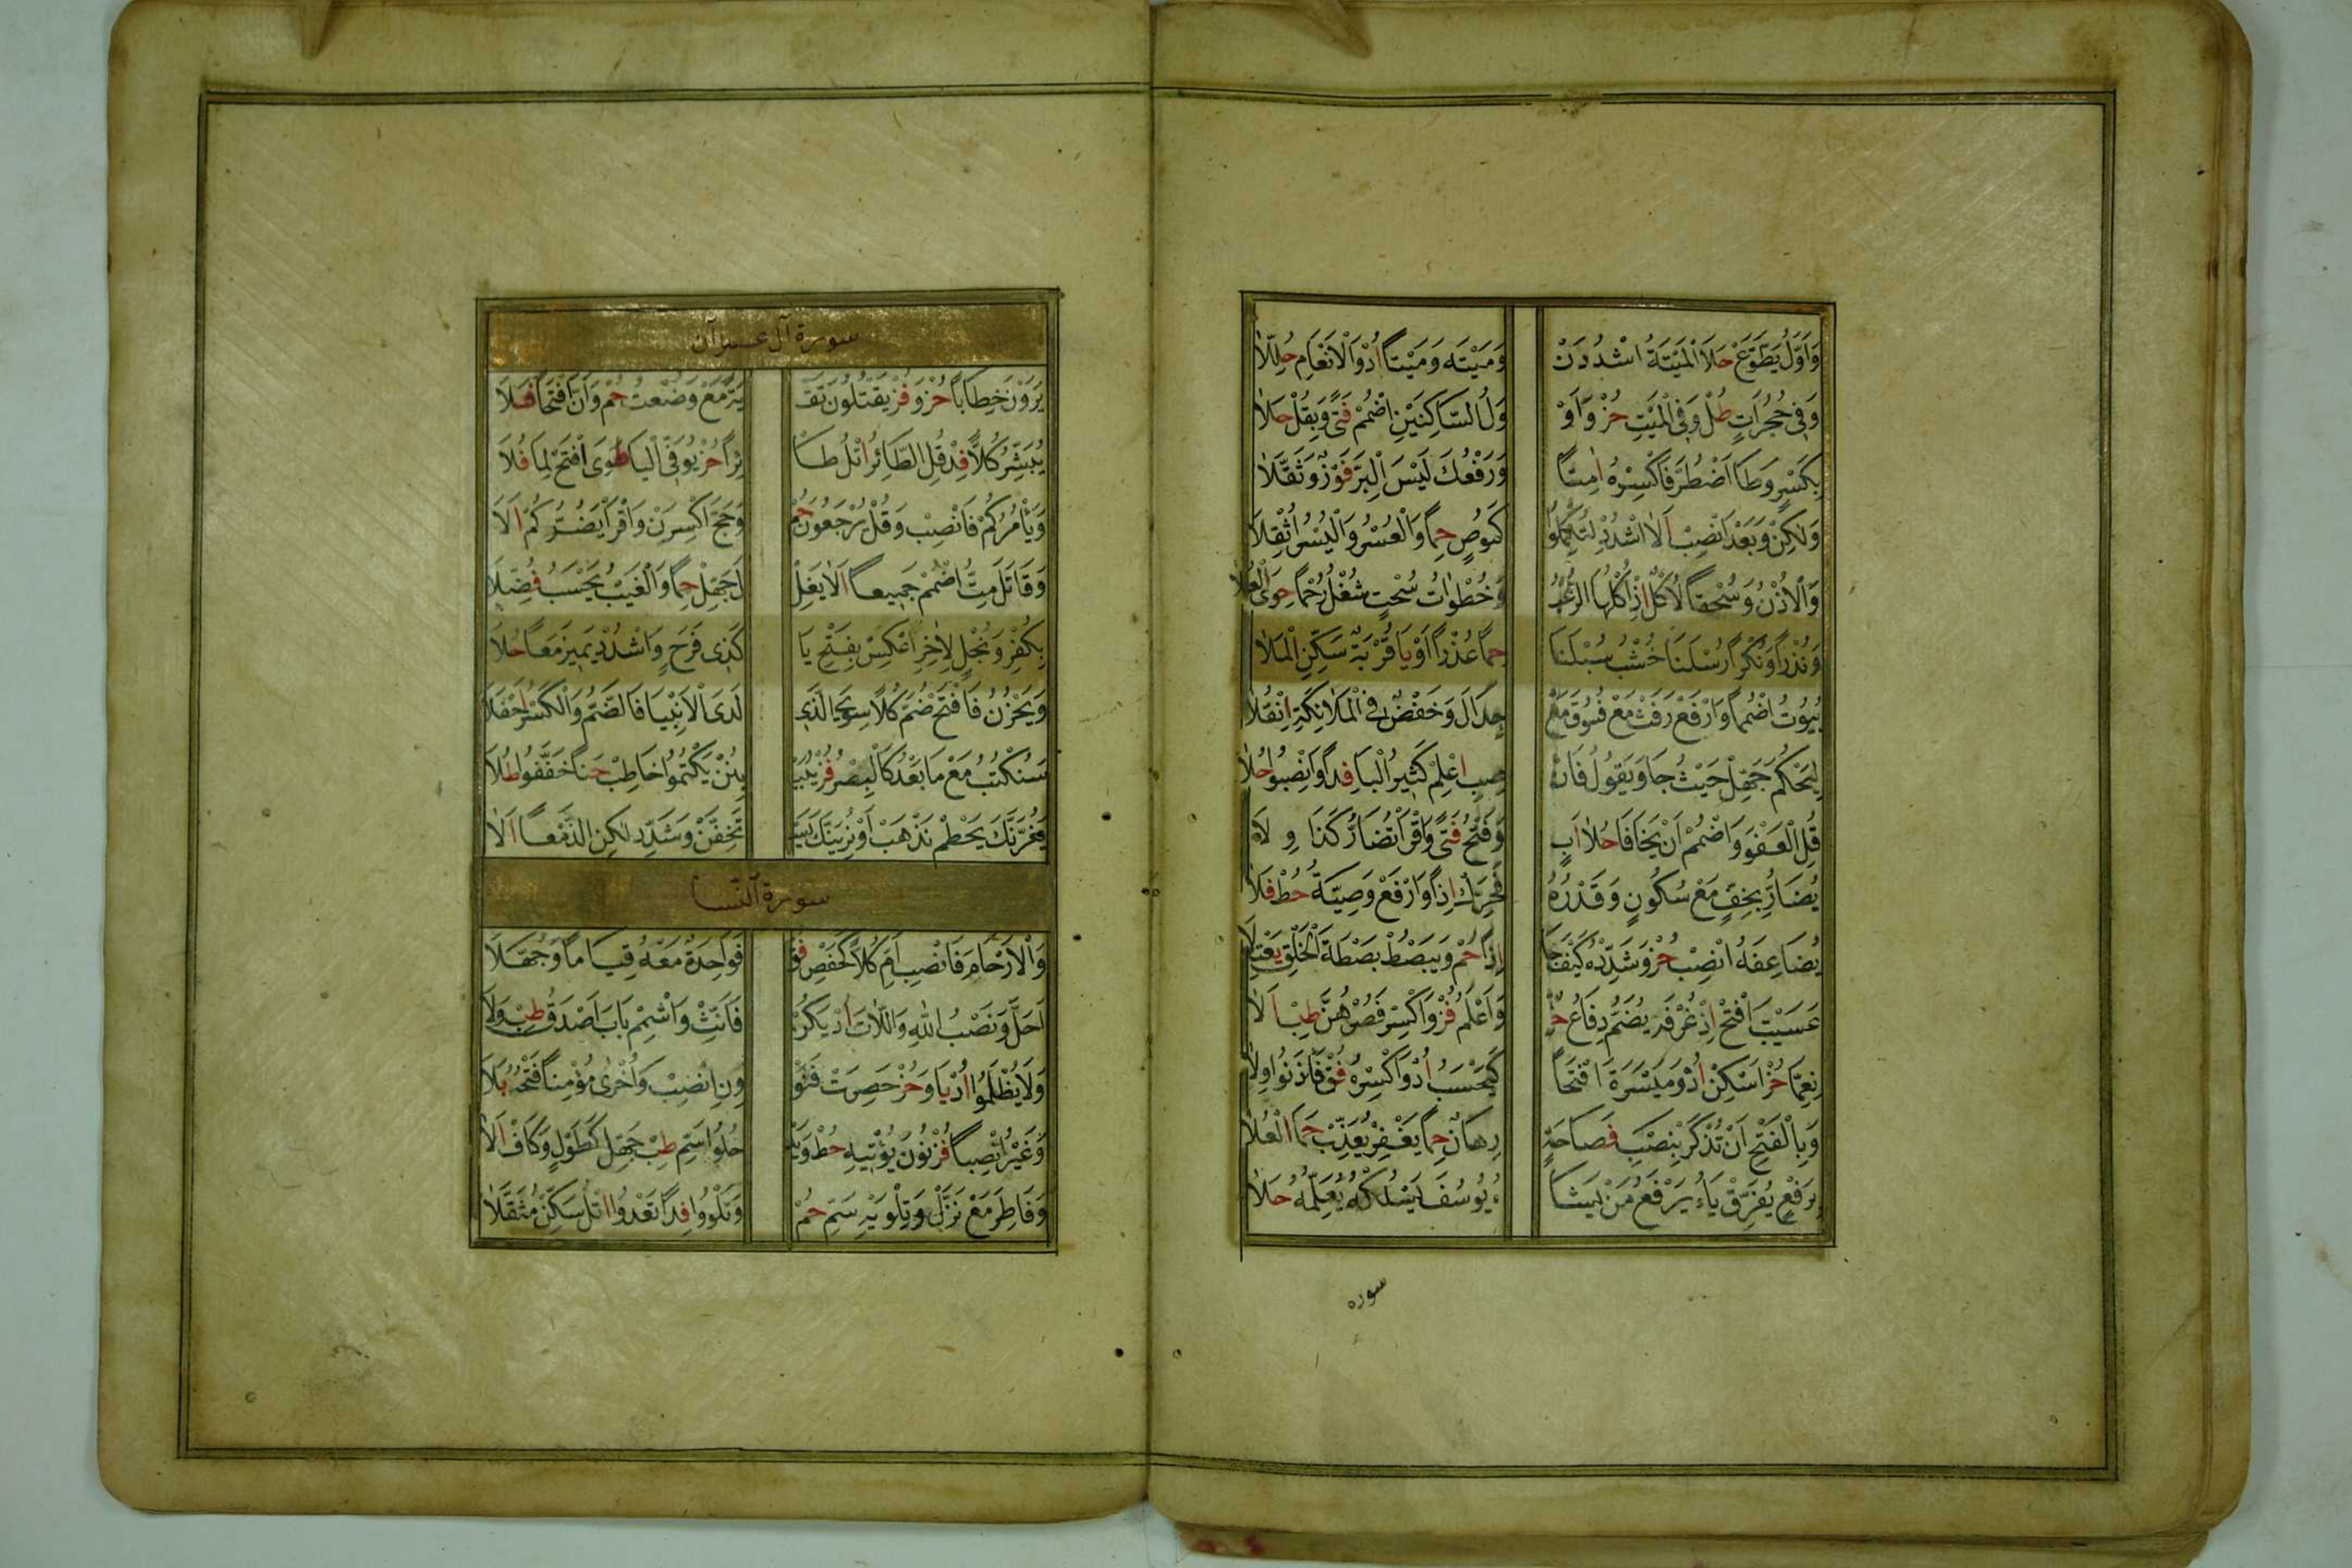 وَاَوَّلُ يَطَّوَّعْ حَلَا الْمَيْتَةُ اشْدُدَنْ وَمَيْتَه وَمَيْتًا اُدْ وَالْاَنْعَامِ حُلِّلَا
وَفِي حُجُرَاتٍ طُلْ وَفِي الْمَيْتِ حُزْ وَاَوْ وَلُ السَّاكِنَيْنِ اضْمُمْ فَتًى وَبِقُلْ حَلَا
بِكَسْرٍ وَطَا اضْطُرَّ فَاكْسِرْهُ اٰمِنًا وَرَفْعُكَ لَيْسَ الْبِرَّ فَوْزٌ وَثَقَّلَا
وَلٰكِنْ وَبَعْدَ انْصِبْ اَلَا اشْدُدْ لِتُكْمِلُوا كَمُوصٍ حِمًا وَالْعُسْرُ وَالْيُسْرُ اُثْقِلَا
وَالْاُذْنُ وَسُحْقًا الْاُكْلُ اِذْ اُكْلُهَا الرُّعُبُ وَخُطْوَاتُ سُحْتٍ شُغْلُ رُحْمًا حِوَى الْعُلَا
وَنُذْرًا وَنُكْرًا رُسْلَنَا خُشْبُ سُبْلَنَا حِمًا عُذْرًا اَوْ يَا قُرْبَةٌ سَكِّنِ الْمَلَا
بُيُوتُ اضْمُمًا وَارْفَعْ رَفَثْ مَعْ فُسُوقَ مَعْ جِدَالَ وَخَفْضٌ فِي الْمَلَائِكَةِ انْقُلَا
لِيُحْكَمَ جَهِّلْ حَيْثُ جَا وَيَقُولُ فَانْ صِبِ اعْلَمْ كَثِيرُ الْبَا فِدًا وَانْصِبُوا حُلَا
قُلِ الْعَفْوَ وَاضْمُمْ اَنْ يَخَافَا حُلَا اَبٍ وَفَتْحُ فَتًى وَاقْرَأْ تُضَارَّ كَذَا وِلَا
يُضَارَّ بِخِفٍّ مَعْ سُكُونٍ وَقَدْرُهُ فَحَرِّكْ اِذًا وَارْفَعْ وَصِيَّةُ حُطْ فَلَا
يُضَاعِفَهُ انْصِبْ حُزْ وَشَدِّدْهُ كَيْفَ جَا اِذًا حُمْ وَيَبْصُطْ بَصْطَةَ الْخَلْقِ يَعْتَلَا
عَسَيْتَ افْتَحْ اِذْ غَرْفَه يُضَمُّ دِفَاعُ حُزْ وَاَعْلَمُ فُزْ وَاكْسِرْ فَصُرْهُنَّ طِبْ اَلَا
نِعِمَّا حُزْ اَسْكِنْ اُدْ وَمَيْسَرَةَ افْتَحًا كَيَحْسَبُ اُدْ وَاكْسِرْهُ فُقْ فَاذَنُوا وِلَا
وَبِالْفَتْحِ اَنْ تُذْكِرْ بِنَصْبٍ فَصَاحَةٍ رِهَانٌ حِمًا يَغْفِرْ يُعَذِّبْ حِمَا الْعُلَا
بِرَفْعٍ يُفَرِّقْ يَاءُ يَرْفَعُ مَنْ يَشَا ءُ يُوسُفَ يَسْلُكْهُ يُعَلِّمُهُ حُلَا
سوره
سورة آل عمرآن
يَرَوْنَ خِطَابًا حُزْ وَفُزْ يَقْتُلُونَ تَقْ يَةً مَعْ وَضَعْتُ حُمْ وَاَنَّ افْتَحًا فَلَا
يُبَشِّرُ كُلًّا فِدْ قُلِ الطَّائِرُ اتْلُ طَا ئِرًا حُزْ يُوَفِّي الْيَا طُوَى افْتَحْ لِمَا فُلَا
وَيَاْمُرَكُمْ فَانْصِبْ وَقُلْ يُرْجَعُونَ حُمْ وَحَجَّ اكْسِرَنْ وَاقْرَأْ يَضُرُّكُمْ اَلَا
وَقَاتَلَ مِتُّ اضْمُمْ جَمِيعًا اَلَا يَغُلْ لَ جَهِّلْ حِمًا وَالْغَيْبُ يَحْسَبُ فُضِّلَا
بِكُفْرٍ وَبُخْلِ الْاٰخِرِ اعْكِسْ بِفَتْحِ يَا كَذِي فَرَحٍ وَاشْدُدْ يَمِيزَ مَعًا حُلَا
وَيَحْزُنُ فَافْتَحْ ضُمَّ كُلًّا سِوَى الَّذِي لَدَى الْاَنْبِيَا فَالضَّمُّ وَالْكَسْرُ اَحْفَلَا
سَنَكْتُبُ مَعْ مَا بَعْدُ كَالْبِصْرُ فُزْ يُبَيْ يِنُنْ يَكْتُمُوا خَاطِبْ حَنًا خَفَّفُوا طُلَا
يَغُرَّنَّكَ يَحْطِمْ نَذْهَبَ اَوْ نُرِيَنَّكَ يَسْتَ خِفَّنْ وَشَدِّدْ لٰكِنِ الَّذْ مَعًا اَلَا
سورة النسا
وَالْاَرْحَامِ فَانْصِبْ اُمِّ كُلًّا كَحَفْصِ فُقْ فَوَاحِدَةٌ مَعَهُ قِيَامًا وَجُهِّلَا
اَحَلَّ وَنَصْبُ اللّٰهِ وَاللَّاتَ اُدْ يَكُنْ فَاَنِّثْ وَاَشْمِمْ بَابَ اَصْدَقُ طِبْ وَلَا
وَلَا يُظْلَمُوا اُدْ يَا وَحُزْ حَصِرَتْ فَنَوْ وِنِ انْصِبْ وَاُخْرٰى مُؤْمِنًا فَتْحُهُ بُلَا
وَغَيْرُ انْصِبًا فُزْ نُونَ يُؤْتِيهِ حُطْ وَيَدْ خُلُوا سَمِّ طِبْ جَهِّلْ كَطَوْلٍ وَكَافْ اَلَا
وَفَاطِرَ مَعْ نَزَّلْ وَتِلْوَيْهِ سَمِّ حُمْ وَتَلْوُوا فِدًا تَعْدُوا اتْلُ سَكِّنْ مُثَقَّلَا